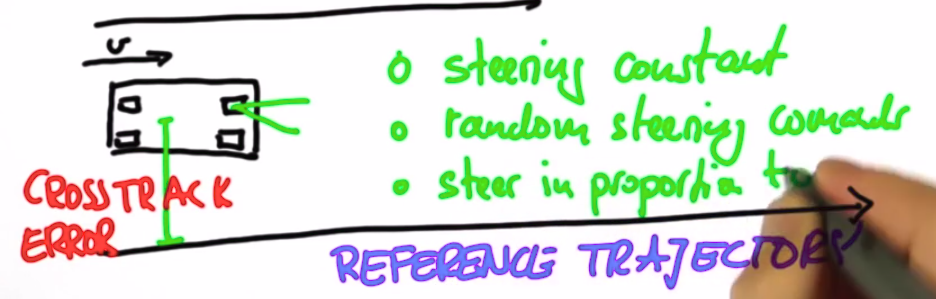 v
steering constant
random steering comands
steer in proportion to
CROSSTRACK
ERROR
REFERENCE TRAJECTORY